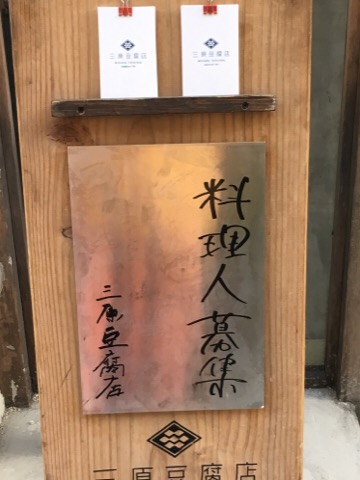 三原豆腐店
三原豆腐店
料理人募集
三原豆腐店
三原豆腐店